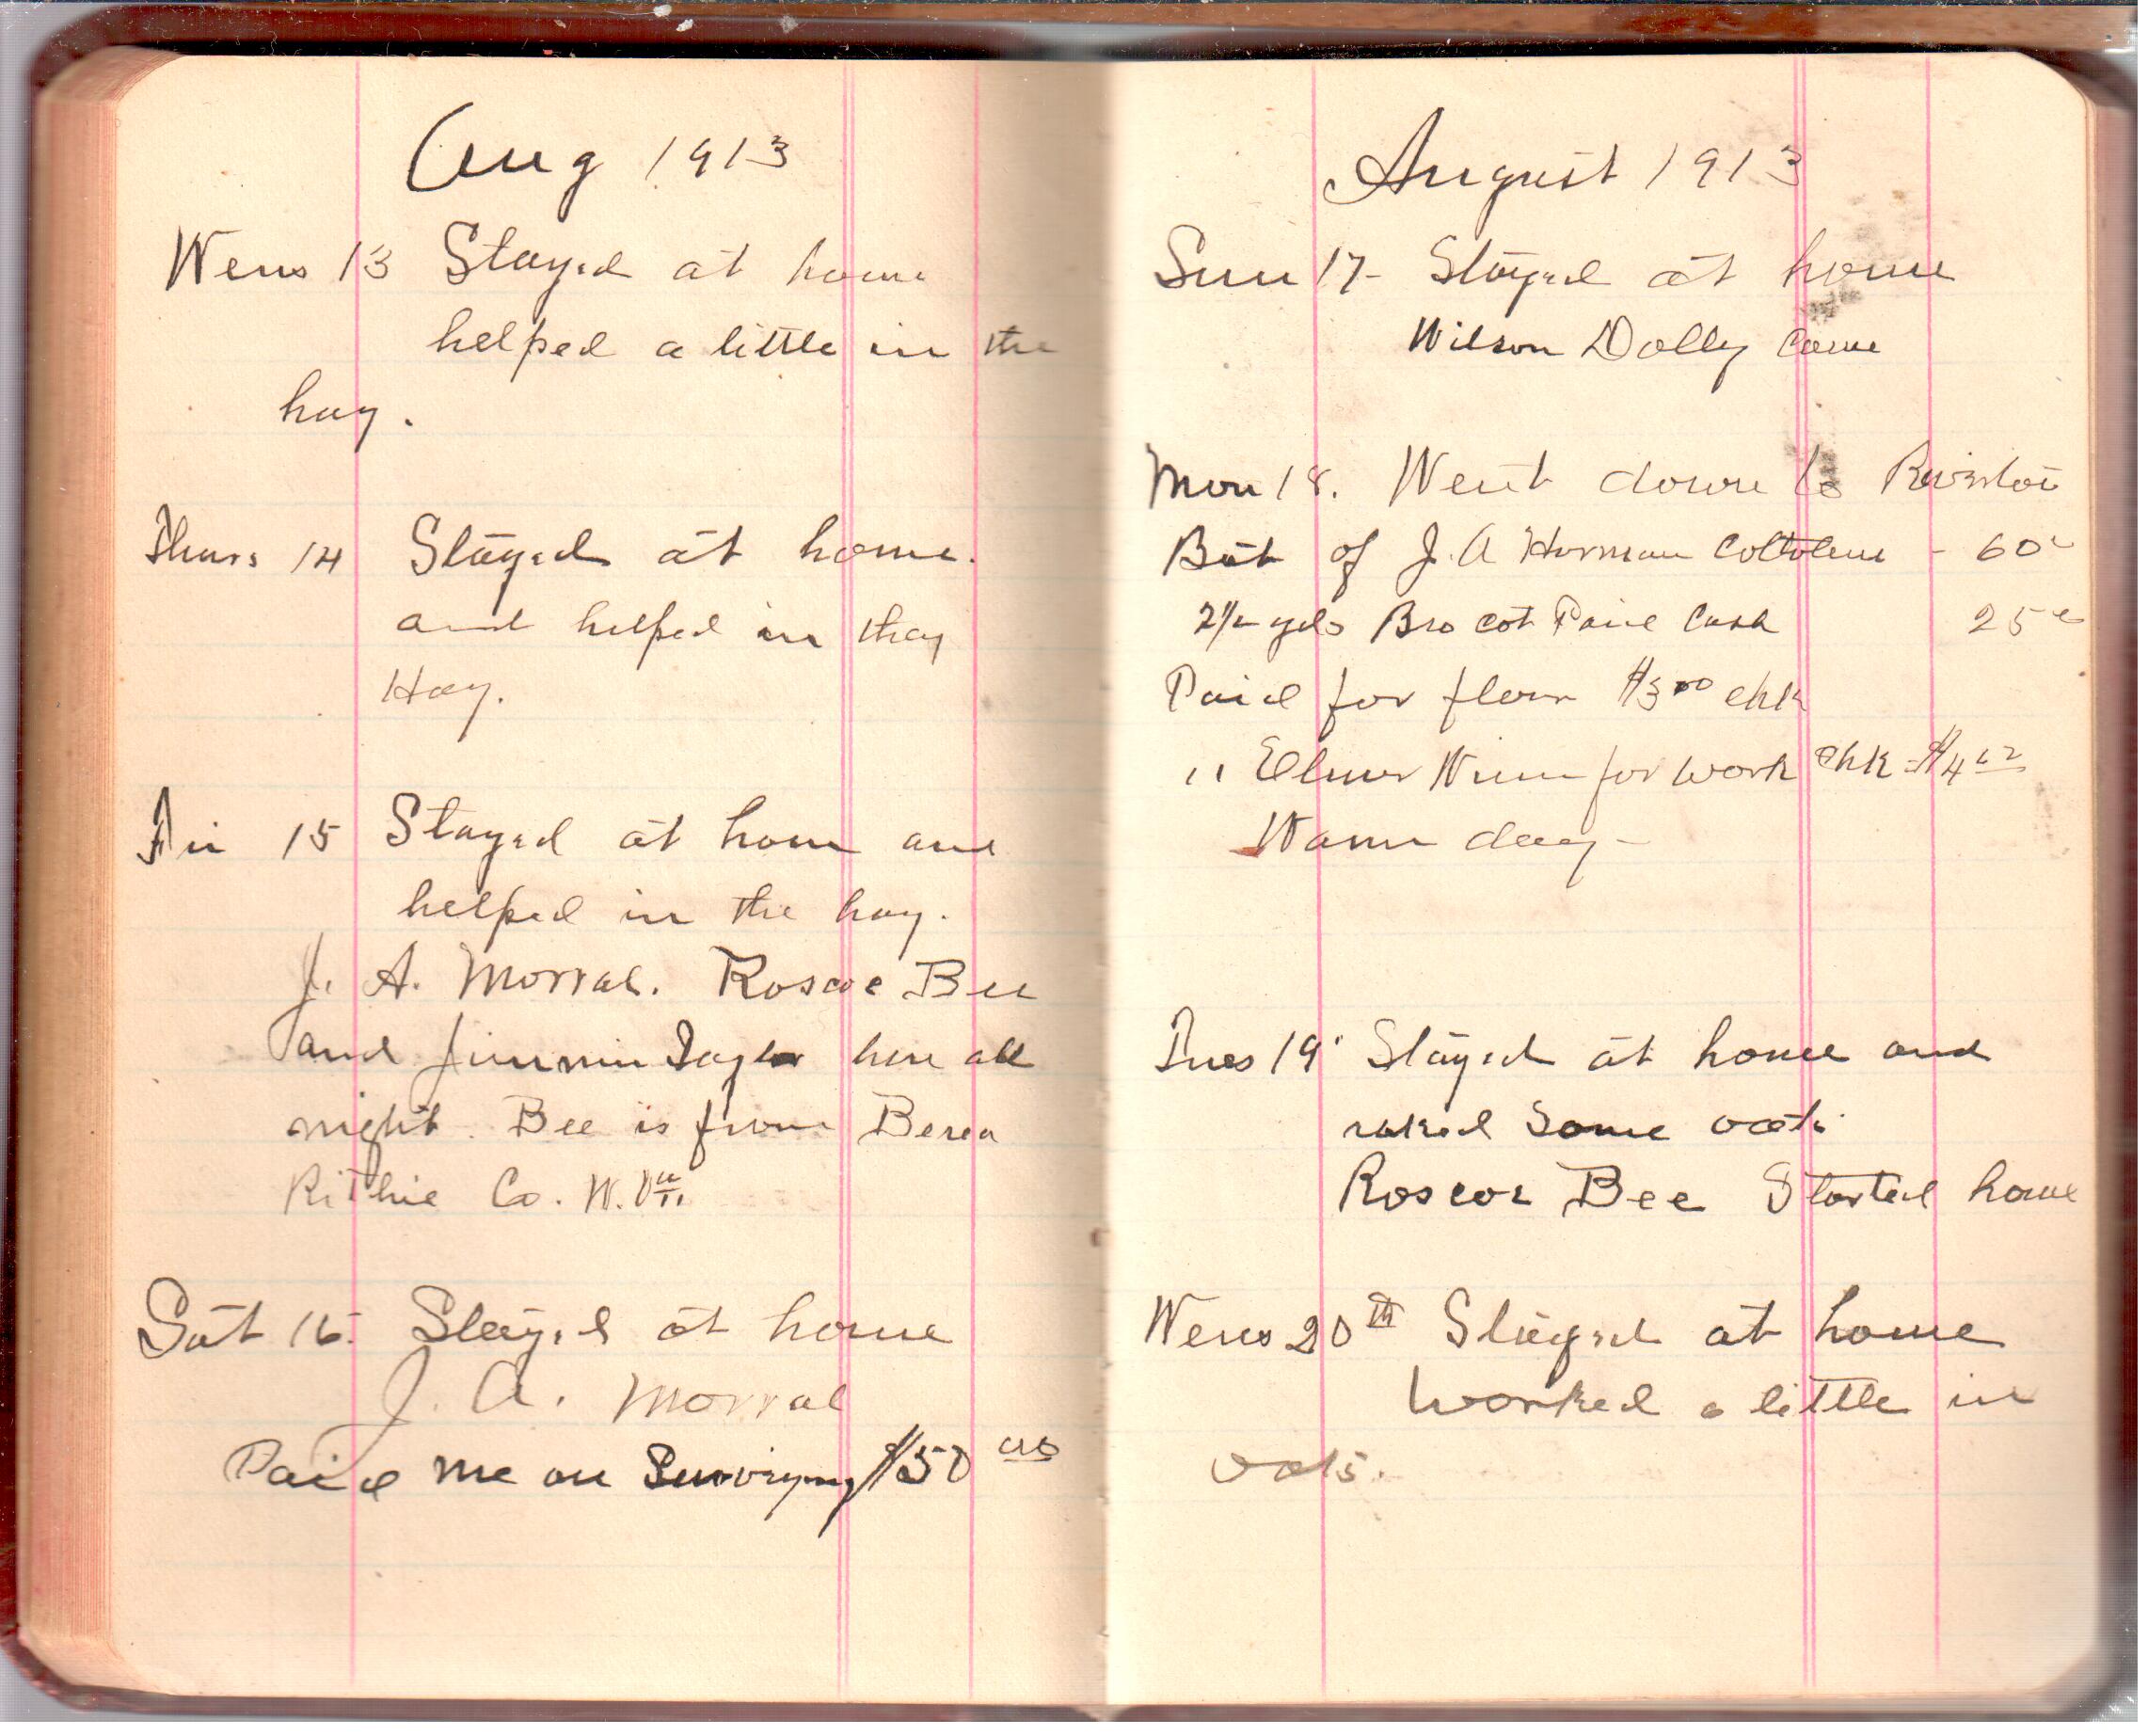 Aug 1913
Wens 13 Stayed at home
helped a little in the
hay.
Thurs 14 Stayed at home.
and helped in thay
Hay.
Fri 15 Stayed at home and
helped in the hay.
J. A. Morral. Roscoe Bee
and Jimmie here all
night. Bee is from Berea
Ritchie Co. W. Va.
Sat 16. Stayed at home
J. A. Morral
Paid me on Surveying $50 00
August 1913
Sun 17- Stayed at home
Wilson Dolly came
Mon 18. Went down to
Bot of J. A Harman Cottolene - 60c
2½ yds Bro cot Paid Cash 25c
Paid for flour $3 00 chk
" Elmer for work chk $4
Warm day -
Tues 19 Stayed at home and
raked some oats
Roscoe Bee Started home
Wens 20th Stayed at home
worked a little in
oats.